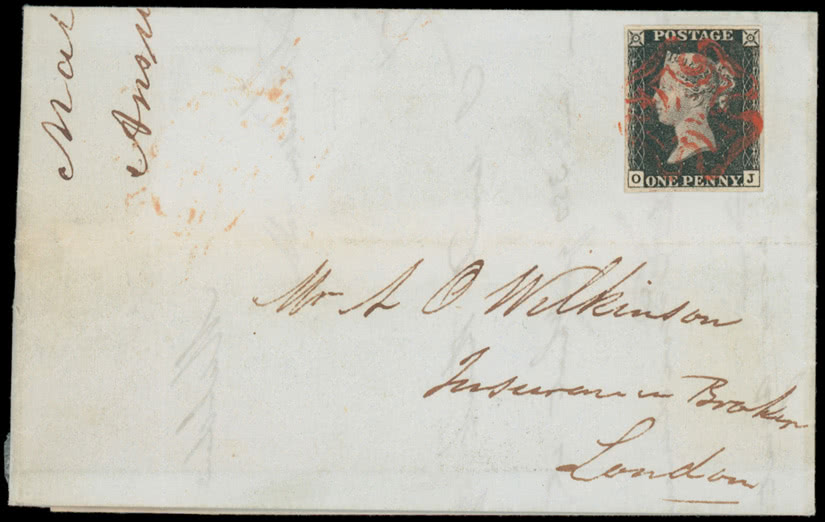 POSTAGE
ONE PENNY.
O J
Mr A O. Wilkinson
Insurance Broker
London